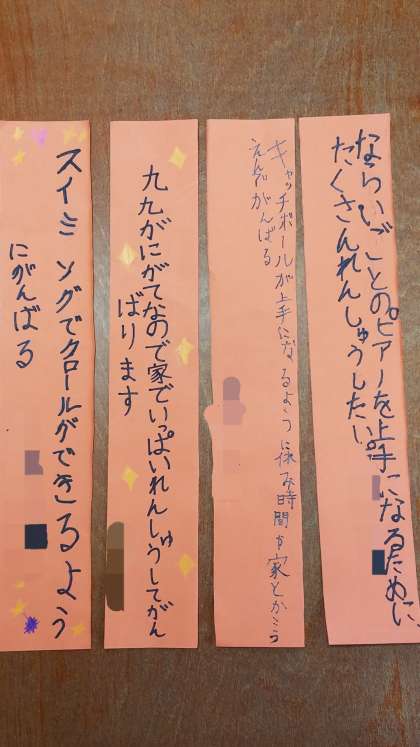 ならいごとのピアノを上手になるために、
たくさんれんしゅうしたい。
キャッチボールが上手になるように休み時間や家とかこう
えんでがんばる
九九がにがてなので家でいっぱいれんしゅうしてがん
ばります
スイミングでクロールができるよう
にがんばる